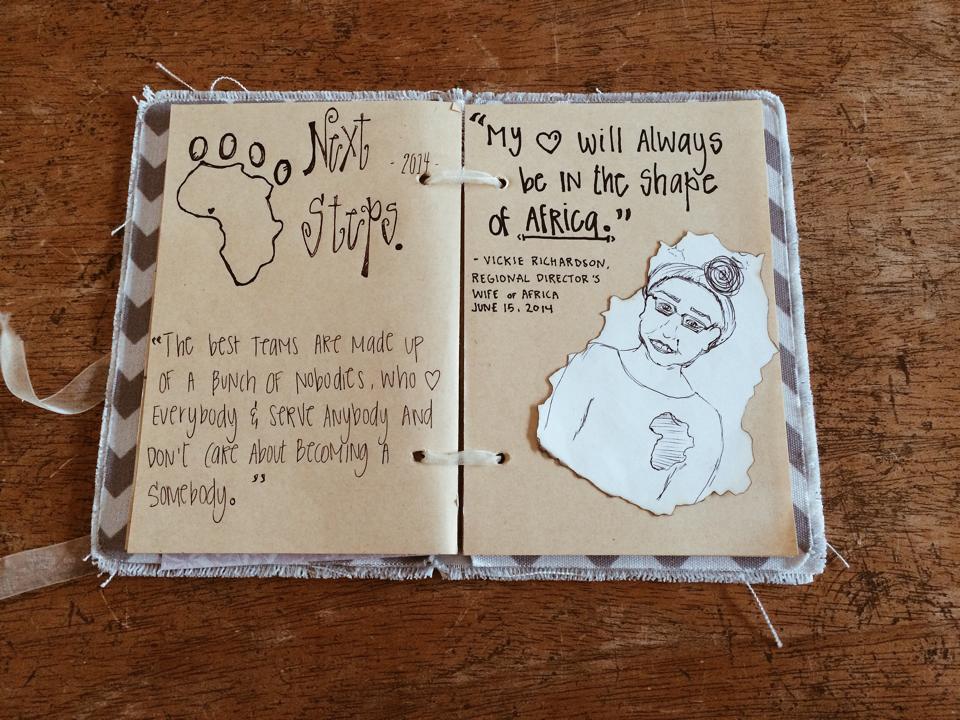 Next
- 2014 -
Steps.
"The best teams are made up
of a bunch of nobodies, who ♡
everybody & serve anybody and
don't care about becoming a
somebody."
"My ♡ will Always
be in the shape
of Africa."
- VICKIE RICHARDSON,
REGIONAL DIRECTOR'S
WIFE of AFRICA
JUNE 15, 2014